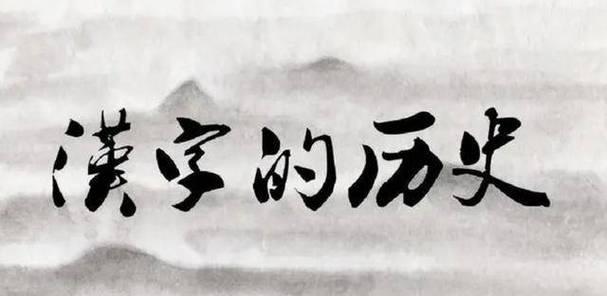 漢字的历史